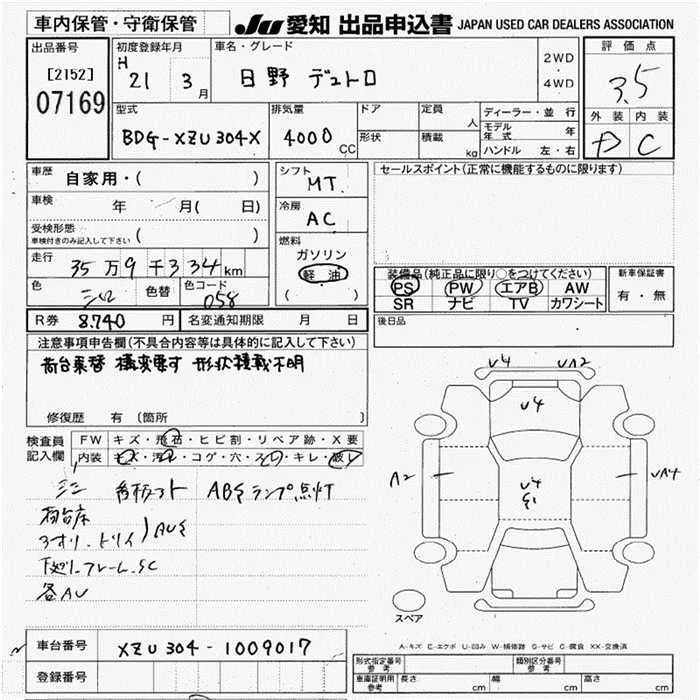 車内保管・守衛保管
JU 愛知 出品申込書 JAPAN USED CAR DEALERS ASSOCIATION
出品番号
[2152]
07169
初度登録年月
H 21 3月
車名・グレード
日野 デュトロ
2WD
・
4WD
評価点
3.5
外装 内装
D C
型式
BDG-XZU304X
排気量
4000 CC
ドア
形状
定員 人
積載 kg
ディーラー・並行
モデル年式 年
ハンドル 左・右
車歴 自家用・( )
車検 年 月( 日)
受検形態
車検付きのみ記入して下さい ( )
走行 35万9千334km
色 色替 色コード 058
シフト
MT
冷房
AC
燃料
ガソリン
軽油
( )
セールスポイント(正常に機能するものに限ります)
装備品(純正品に限り○をつけてください)
PS PW エアB AW
SR ナビ TV カワシート
新車保証書
有・無
R券 8,740 円 名変通知期限 月 日
後日品
注意事項申告欄(不具合内容等は具体的に記入して下さい)
荷台乗替 構変要す 形状積載不明
修復歴 有 (箇所 )
検査員記入欄
FW キズ・飛石・ヒビ割・リペア跡・X要
内装 キズ・汚レ・コゲ・穴・スレ・キレ・破レ
ABSランプ点灯
荷台床
下廻り.フレーム.SC
各AU
U4 UA2
U4
A2 U4 UA4
S1
スペア
A-キズ E-エクボ U-凹み W-補修跡 S-サビ C-腐食 XX-交換済
車台番号 XZU304-1009017
登録番号
形式指定番号 参考 類別区分番号 参考
車庫証明用 参考 長さ cm 幅 cm 高さ cm